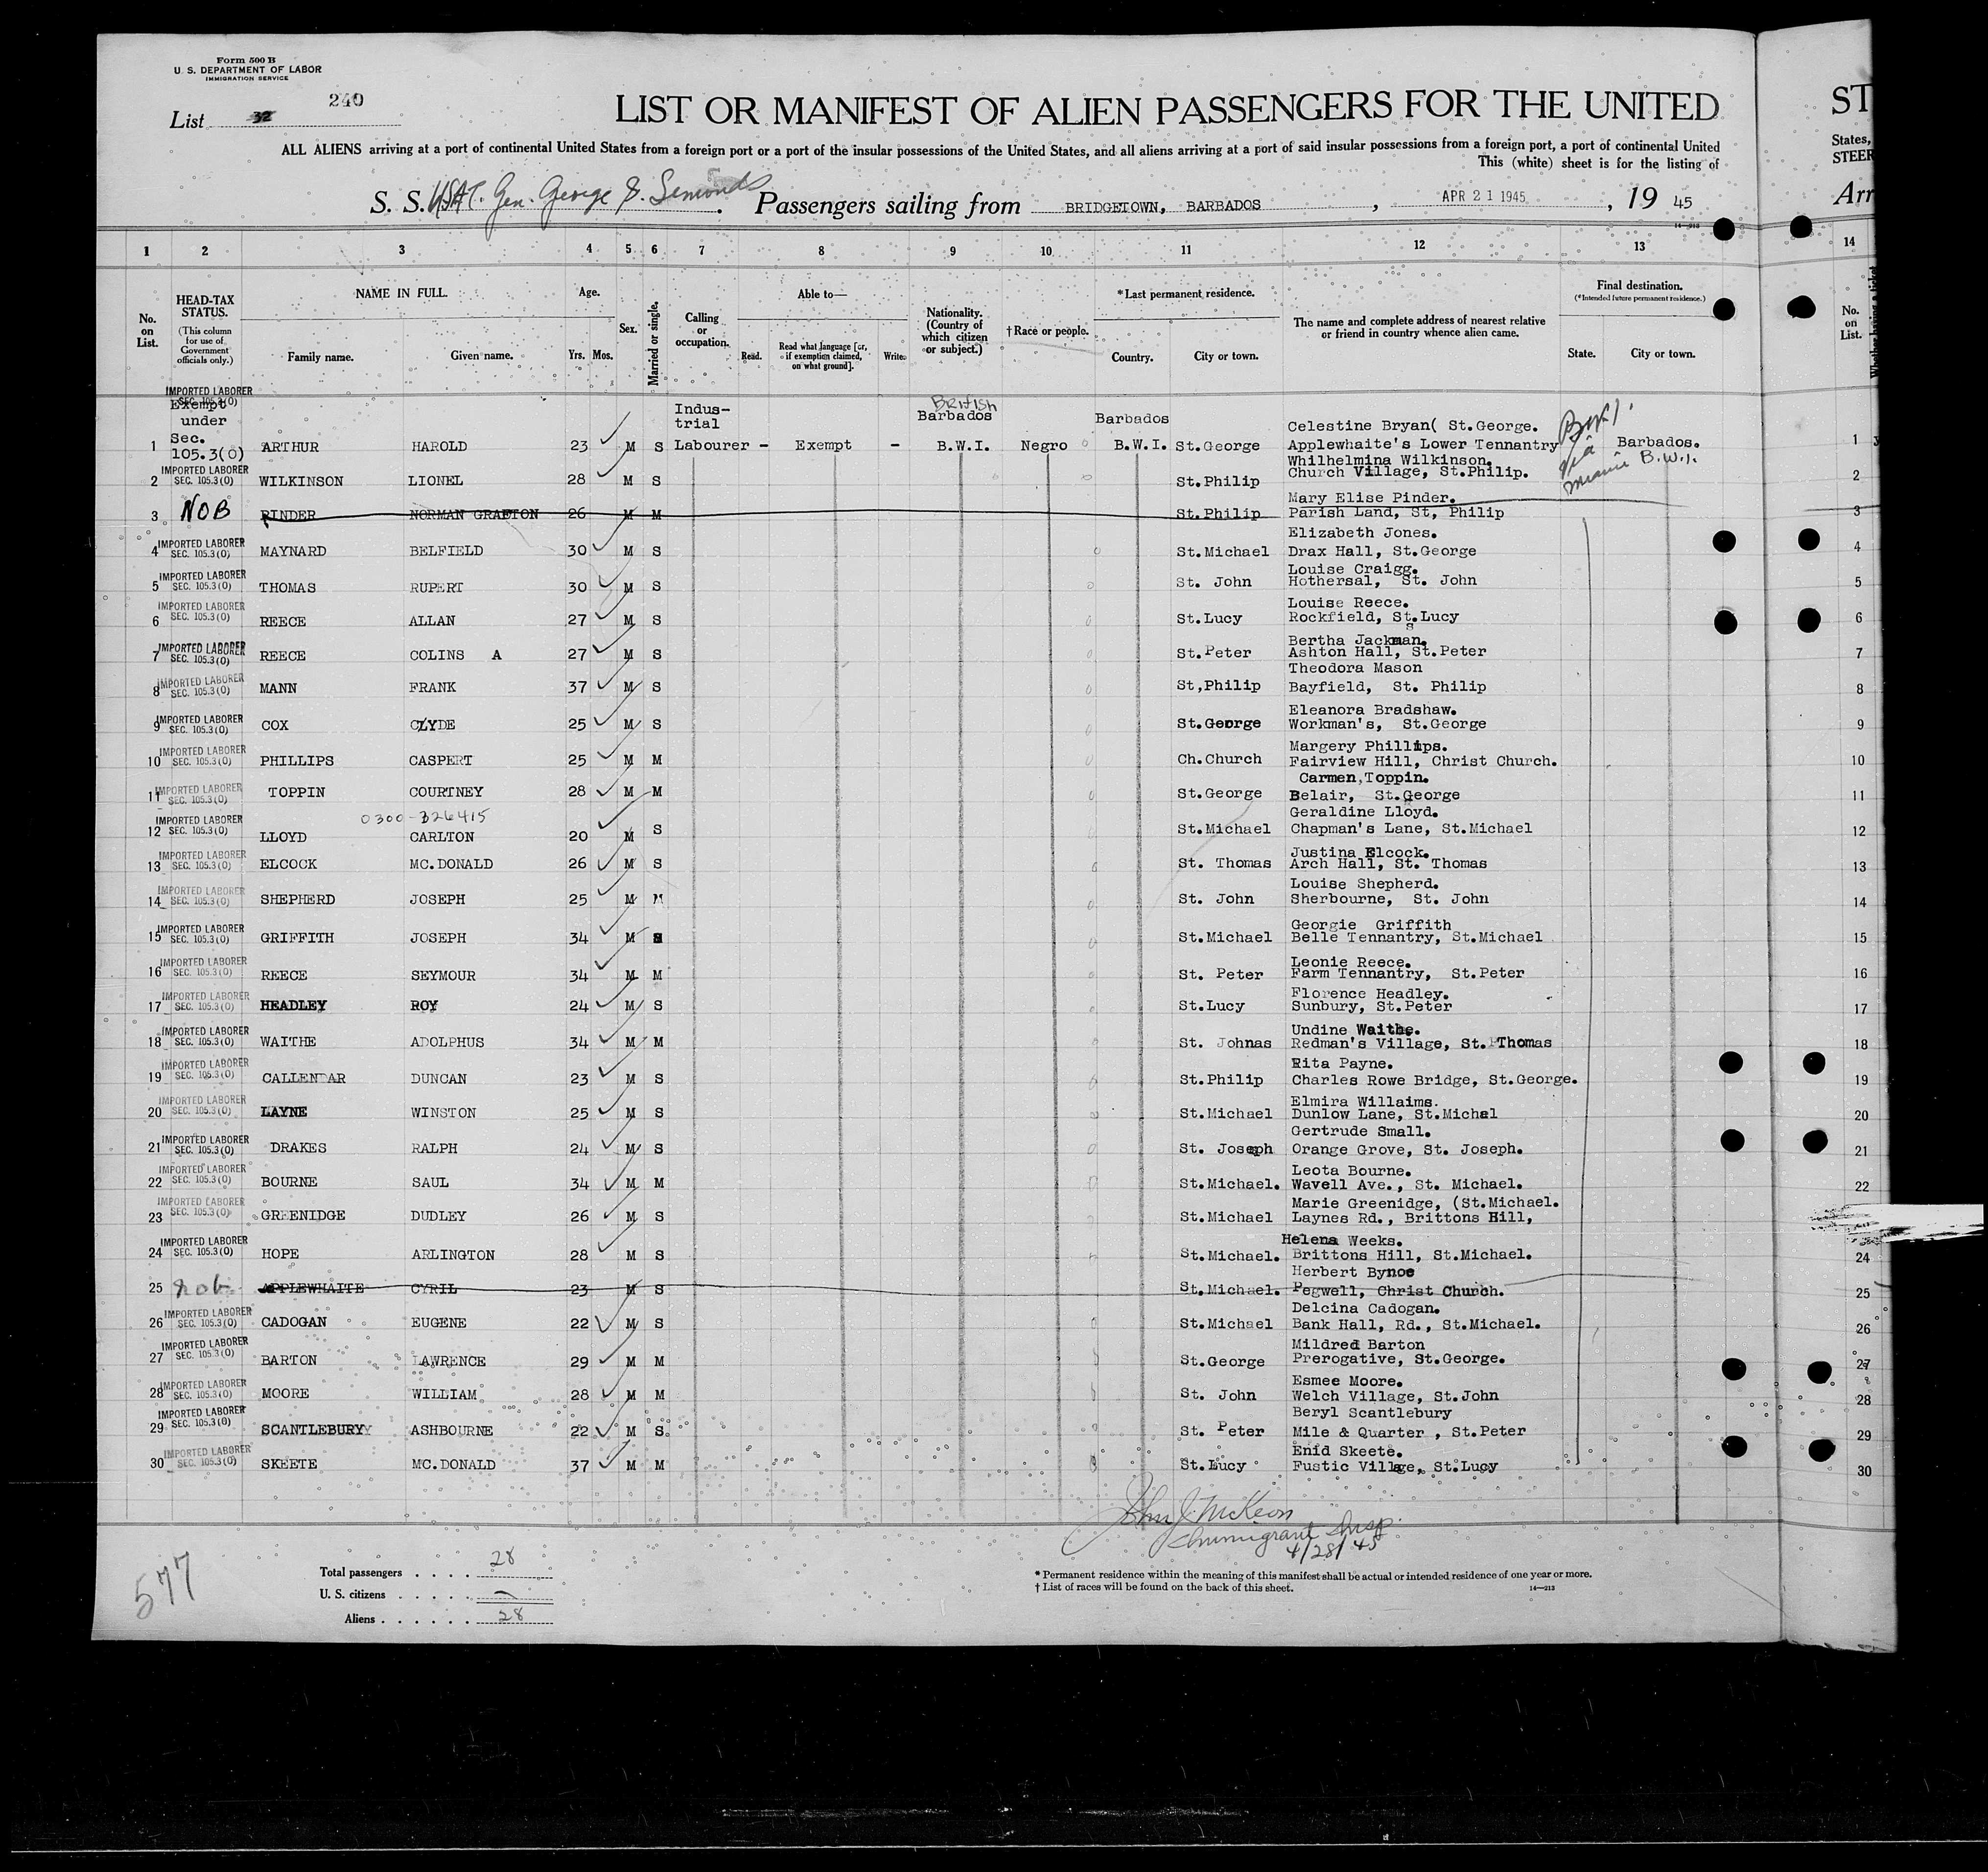 Form 500 B
U. S. DEPARTMENT OF LABOR
IMMIGRATION SERVICE
240
List 32
LIST OR MANIFEST OF ALIEN PASSENGERS FOR THE UNITED ST
ALL ALIENS arriving at a port of continental United States from a foreign port or a port of the insular possessions of the United States, and all aliens arriving at a port of said insular possessions from a foreign port, a port of continental United States,
This (white) sheet is for the listing of STEER
S. S. USAT. Gen. George S. Simonds. Passengers sailing from BRIDGETOWN, BARBADOS, APR 21 1945, 19 45 Arr
14—213
1 2 3 4 5 6 7 8 9 10 11 12 13 14
HEAD-TAX STATUS. (This column for use of Government officials only.)
NAME IN FULL.
Age.
Able to—
*Last permanent residence.
Final destination.
(*Intended future permanent residence.)
No. on List.
Family name. Given name. Yrs. Mos. Sex. Married or single. Calling or occupation. Read. Read what language [or, if exemption claimed, on what ground]. Write. Nationality. (Country of which citizen or subject.) †Race or people. Country. City or town. The name and complete address of nearest relative or friend in country whence alien came. State. City or town. No. on List.
IMPORTED LABORER SEC. 105.3(0)
Exempt under Sec. 105.3(0) Indus-trial British Barbados Barbados Celestine Bryan( St.George.
1 ARTHUR HAROLD 23 M S Labourer - Exempt - B.W.I. Negro B.W.I. St.George Applewhaite's Lower Tennantry Barbados. 1
via Miami B.W.I.
Whilhelmina Wilkinson.
2 IMPORTED LABORER SEC. 105.3(0) WILKINSON LIONEL 28 M S St.Philip Church Village, St.Philip. 2
Mary Elise Pinder.
3 NOB PINDER NORMAN GRAFTON 26 M M St.Philip Parish Land, St, Philip 3
Elizabeth Jones.
4 IMPORTED LABORER SEC. 105.3(0) MAYNARD BELFIELD 30 M S St.Michael Drax Hall, St.George 4
Louise Craigg.
5 IMPORTED LABORER SEC. 105.3(0) THOMAS RUPERT 30 M S St. John Hothersal, St. John 5
Louise Reece.
6 IMPORTED LABORER SEC. 105.3(0) REECE ALLAN 27 M S St.Lucy Rockfield, St.Lucy 6
Bertha Jackman.
7 IMPORTED LABORER SEC. 105.3(0) REECE COLINS A 27 M S St.Peter Ashton Hall, St.Peter 7
Theodora Mason
8 IMPORTED LABORER SEC. 105.3(0) MANN FRANK 37 M S St,Philip Bayfield, St. Philip 8
Eleanora Bradshaw.
9 IMPORTED LABORER SEC. 105.3(0) COX CLYDE 25 M S St.George Workman's, St.George 9
Margery Phillips.
10 IMPORTED LABORER SEC. 105.3(0) PHILLIPS CASPERT 25 M M Ch.Church Fairview Hill, Christ Church. 10
Carmen,Toppin.
11 IMPORTED LABORER SEC. 105.3(0) TOPPIN COURTNEY 28 M M St.George Belair, St.George 11
0300-326415 Geraldine Lloyd.
12 IMPORTED LABORER SEC. 105.3(0) LLOYD CARLTON 20 M S St.Michael Chapman's Lane, St.Michael 12
Justina Elcock.
13 IMPORTED LABORER SEC. 105.3(0) ELCOCK MC.DONALD 26 M S St. Thomas Arch Hall, St. Thomas 13
Louise Shepherd.
14 IMPORTED LABORER SEC. 105.3(0) SHEPHERD JOSEPH 25 M M St. John Sherbourne, St. John 14
Georgie Griffith
15 IMPORTED LABORER SEC. 105.3(0) GRIFFITH JOSEPH 34 M S St.Michael Belle Tennantry, St.Michael 15
Leonie Reece.
16 IMPORTED LABORER SEC. 105.3(0) REECE SEYMOUR 34 M M St. Peter Farm Tennantry, St.Peter 16
Florence Headley.
17 IMPORTED LABORER SEC. 105.3(0) HEADLEY ROY 24 M S St.Lucy Sunbury, St.Peter 17
Undine Waithe.
18 IMPORTED LABORER SEC. 105.3(0) WAITHE ADOLPHUS 34 M M St. Johnas Redman's Village, St. Thomas 18
Rita Payne.
19 IMPORTED LABORER SEC. 105.3(0) CALLENDAR DUNCAN 23 M S St.Philip Charles Rowe Bridge, St.George. 19
Elmira Willaims.
20 IMPORTED LABORER SEC. 105.3(0) LAYNE WINSTON 25 M S St.Michael Dunlow Lane, St.Michel 20
Gertrude Small.
21 IMPORTED LABORER SEC. 105.3(0) DRAKES RALPH 24 M S St. Joseph Orange Grove, St. Joseph. 21
Leota Bourne.
22 IMPORTED LABORER SEC. 105.3(0) BOURNE SAUL 34 M M St.Michael. Wavell Ave., St. Michael. 22
Marie Greenidge, (St.Michael.
23 IMPORTED LABORER SEC. 105.3(0) GREENIDGE DUDLEY 26 M S St.Michael Laynes Rd., Brittons Hill,
Helena Weeks.
24 IMPORTED LABORER SEC. 105.3(0) HOPE ARLINGTON 28 M S St.Michael. Brittons Hill, St.Michael. 24
Herbert Bynoe
25 nob APPLEWHAITE CYRIL 23 M S St.Michael. Pegwell, Christ Church. 25
Delcina Cadogan.
26 IMPORTED LABORER SEC. 105.3(0) CADOGAN EUGENE 22 M S St.Michael Bank Hall, Rd., St.Michael. 26
Mildred Barton
27 IMPORTED LABORER SEC. 105.3(0) BARTON LAWRENCE 29 M M St.George Prerogative, St.George. 27
Esmee Moore.
28 IMPORTED LABORER SEC. 105.3(0) MOORE WILLIAM 28 M M St. John Welch Village, St.John 28
Beryl Scantlebury
29 IMPORTED LABORER SEC. 105.3(0) SCANTLEBURY ASHBOURNE 22 M S St. Peter Mile & Quarter , St.Peter 29
Enid Skeete.
30 IMPORTED LABORER SEC. 105.3(0) SKEETE MC.DONALD 37 M M St.Lucy Fustic Village, St.Lucy 30
John J. McKeon
Immigrant Insp.
4/28/45
577
Total passengers . . . . 28
U. S. citizens . . . . . —
Aliens . . . . . . 28
* Permanent residence within the meaning of this manifest shall be actual or intended residence of one year or more.
† List of races will be found on the back of this sheet. 14—213